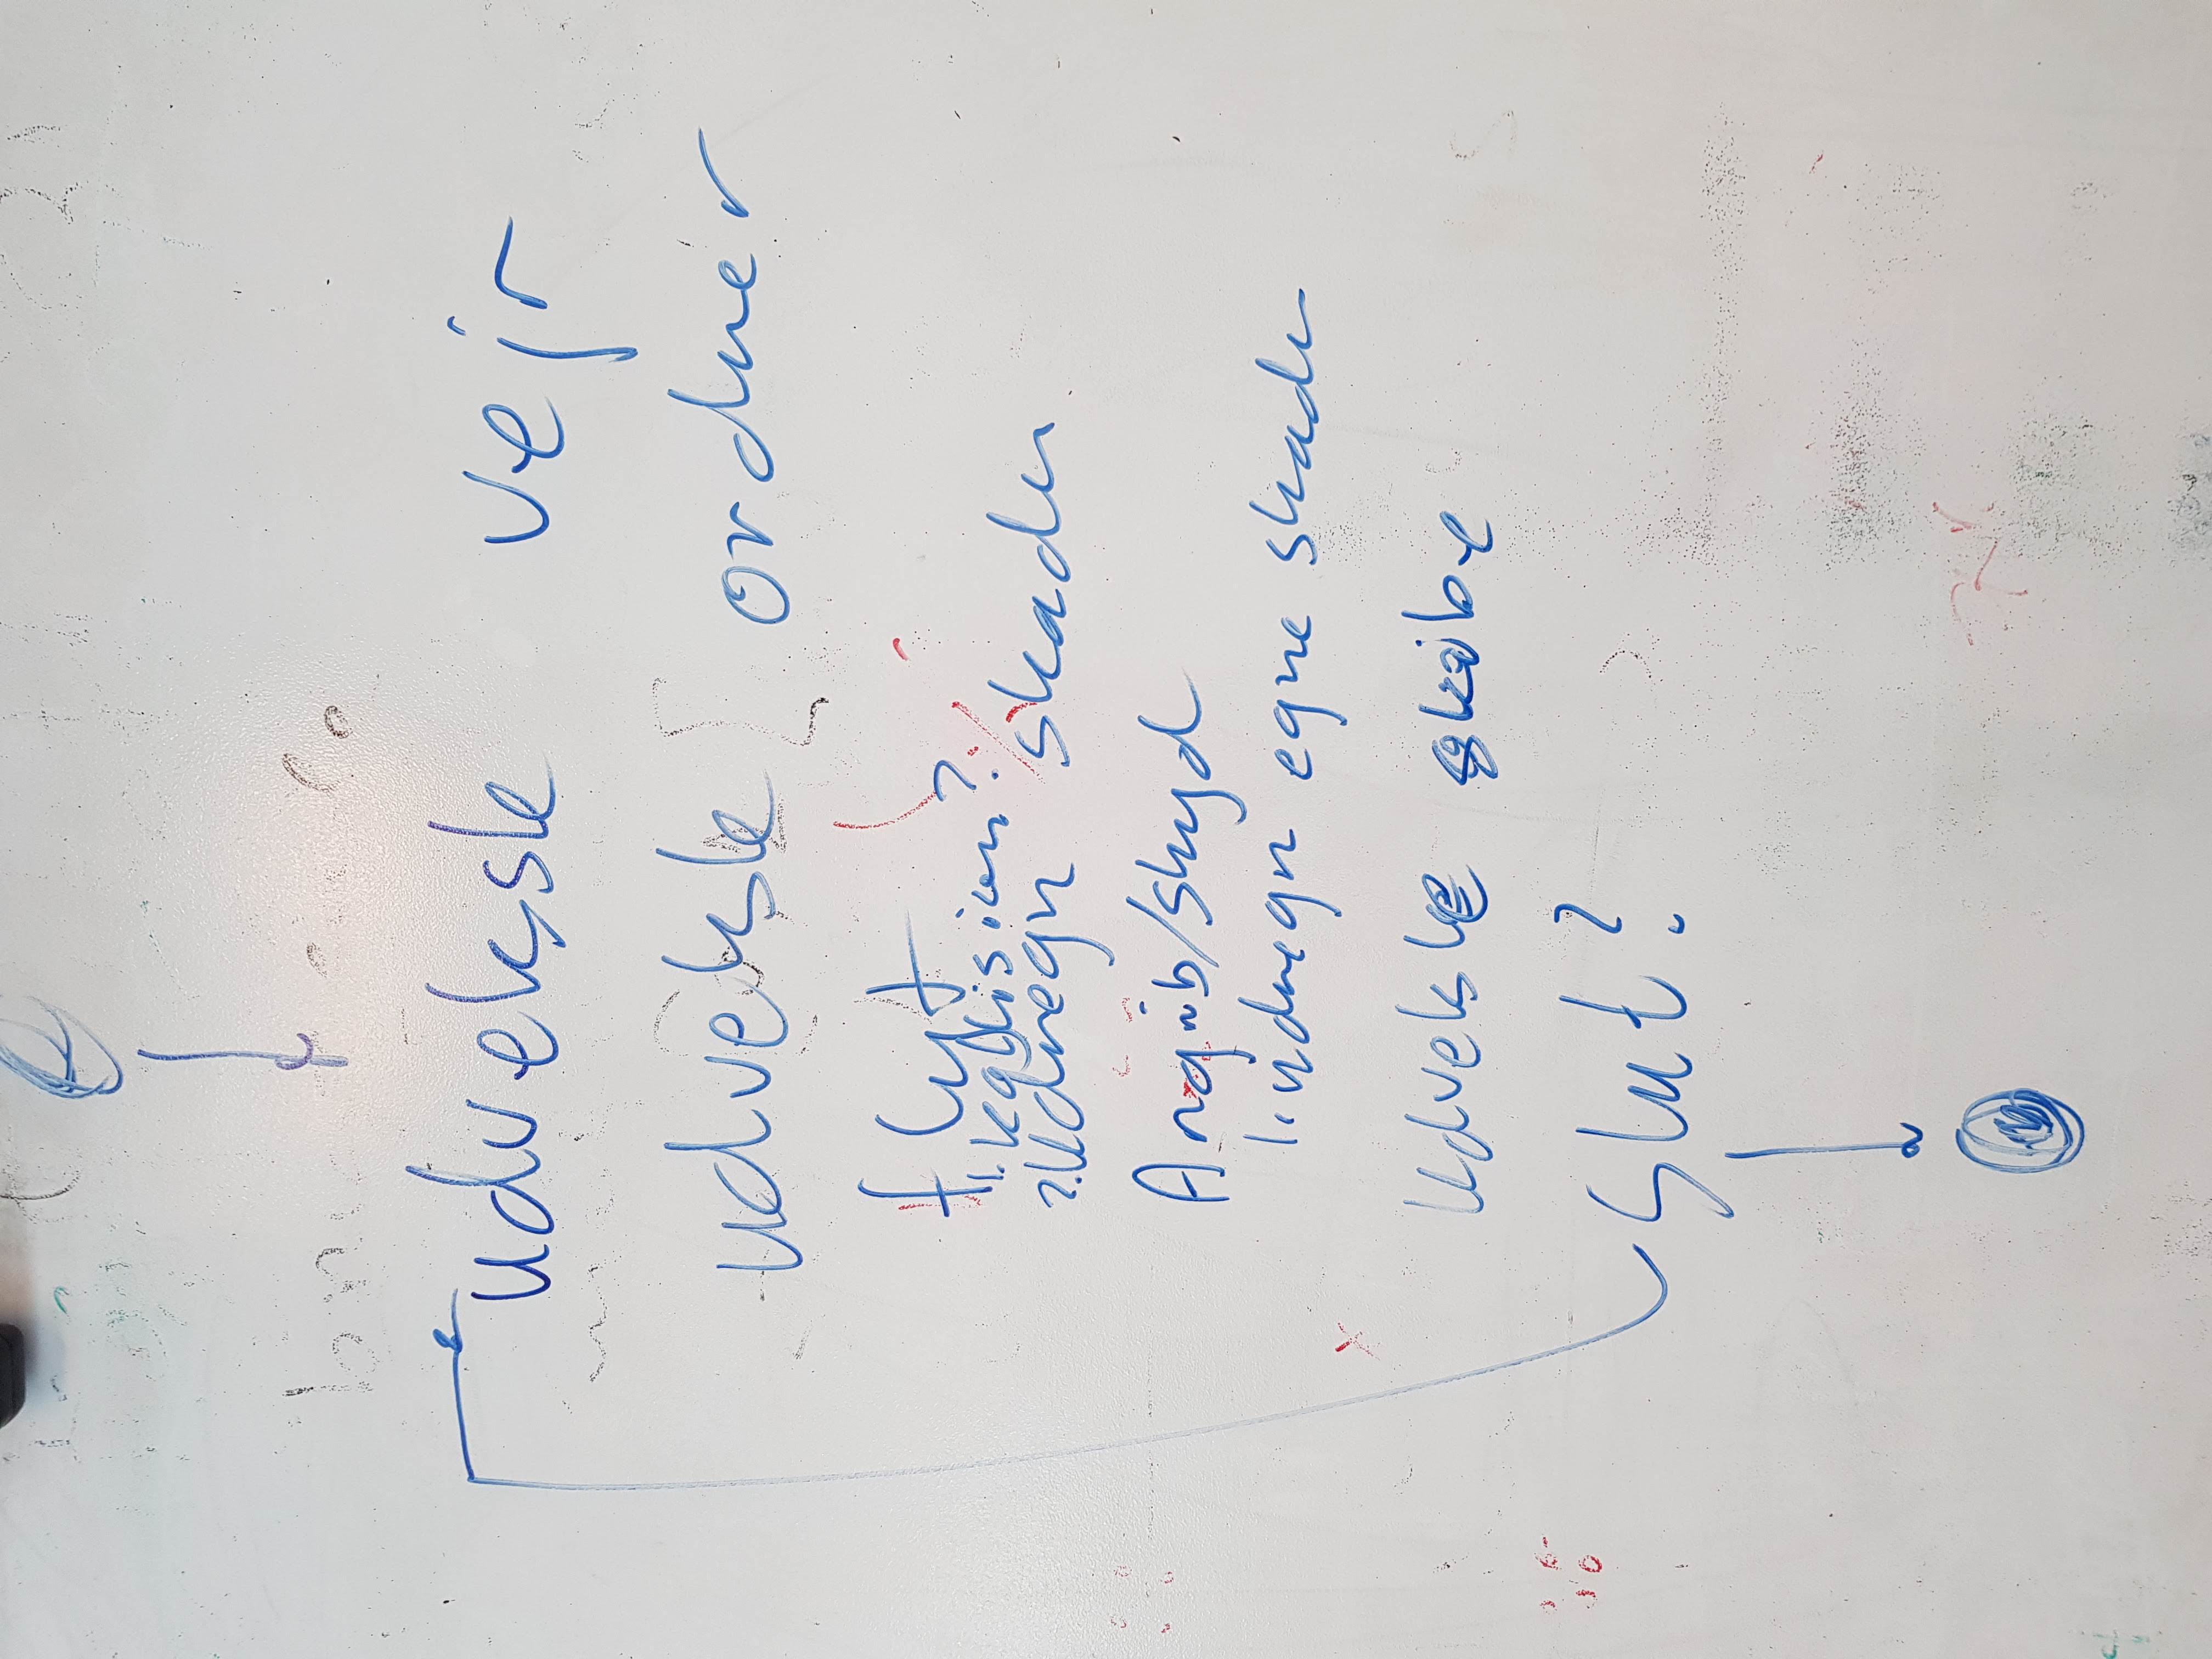 udveksle vejr
udveksle ordner
flyt
1. kollision?
2. udregn skader
Angrib/skyd
1. udregn egne skader
Udveksle skibe
Slut?